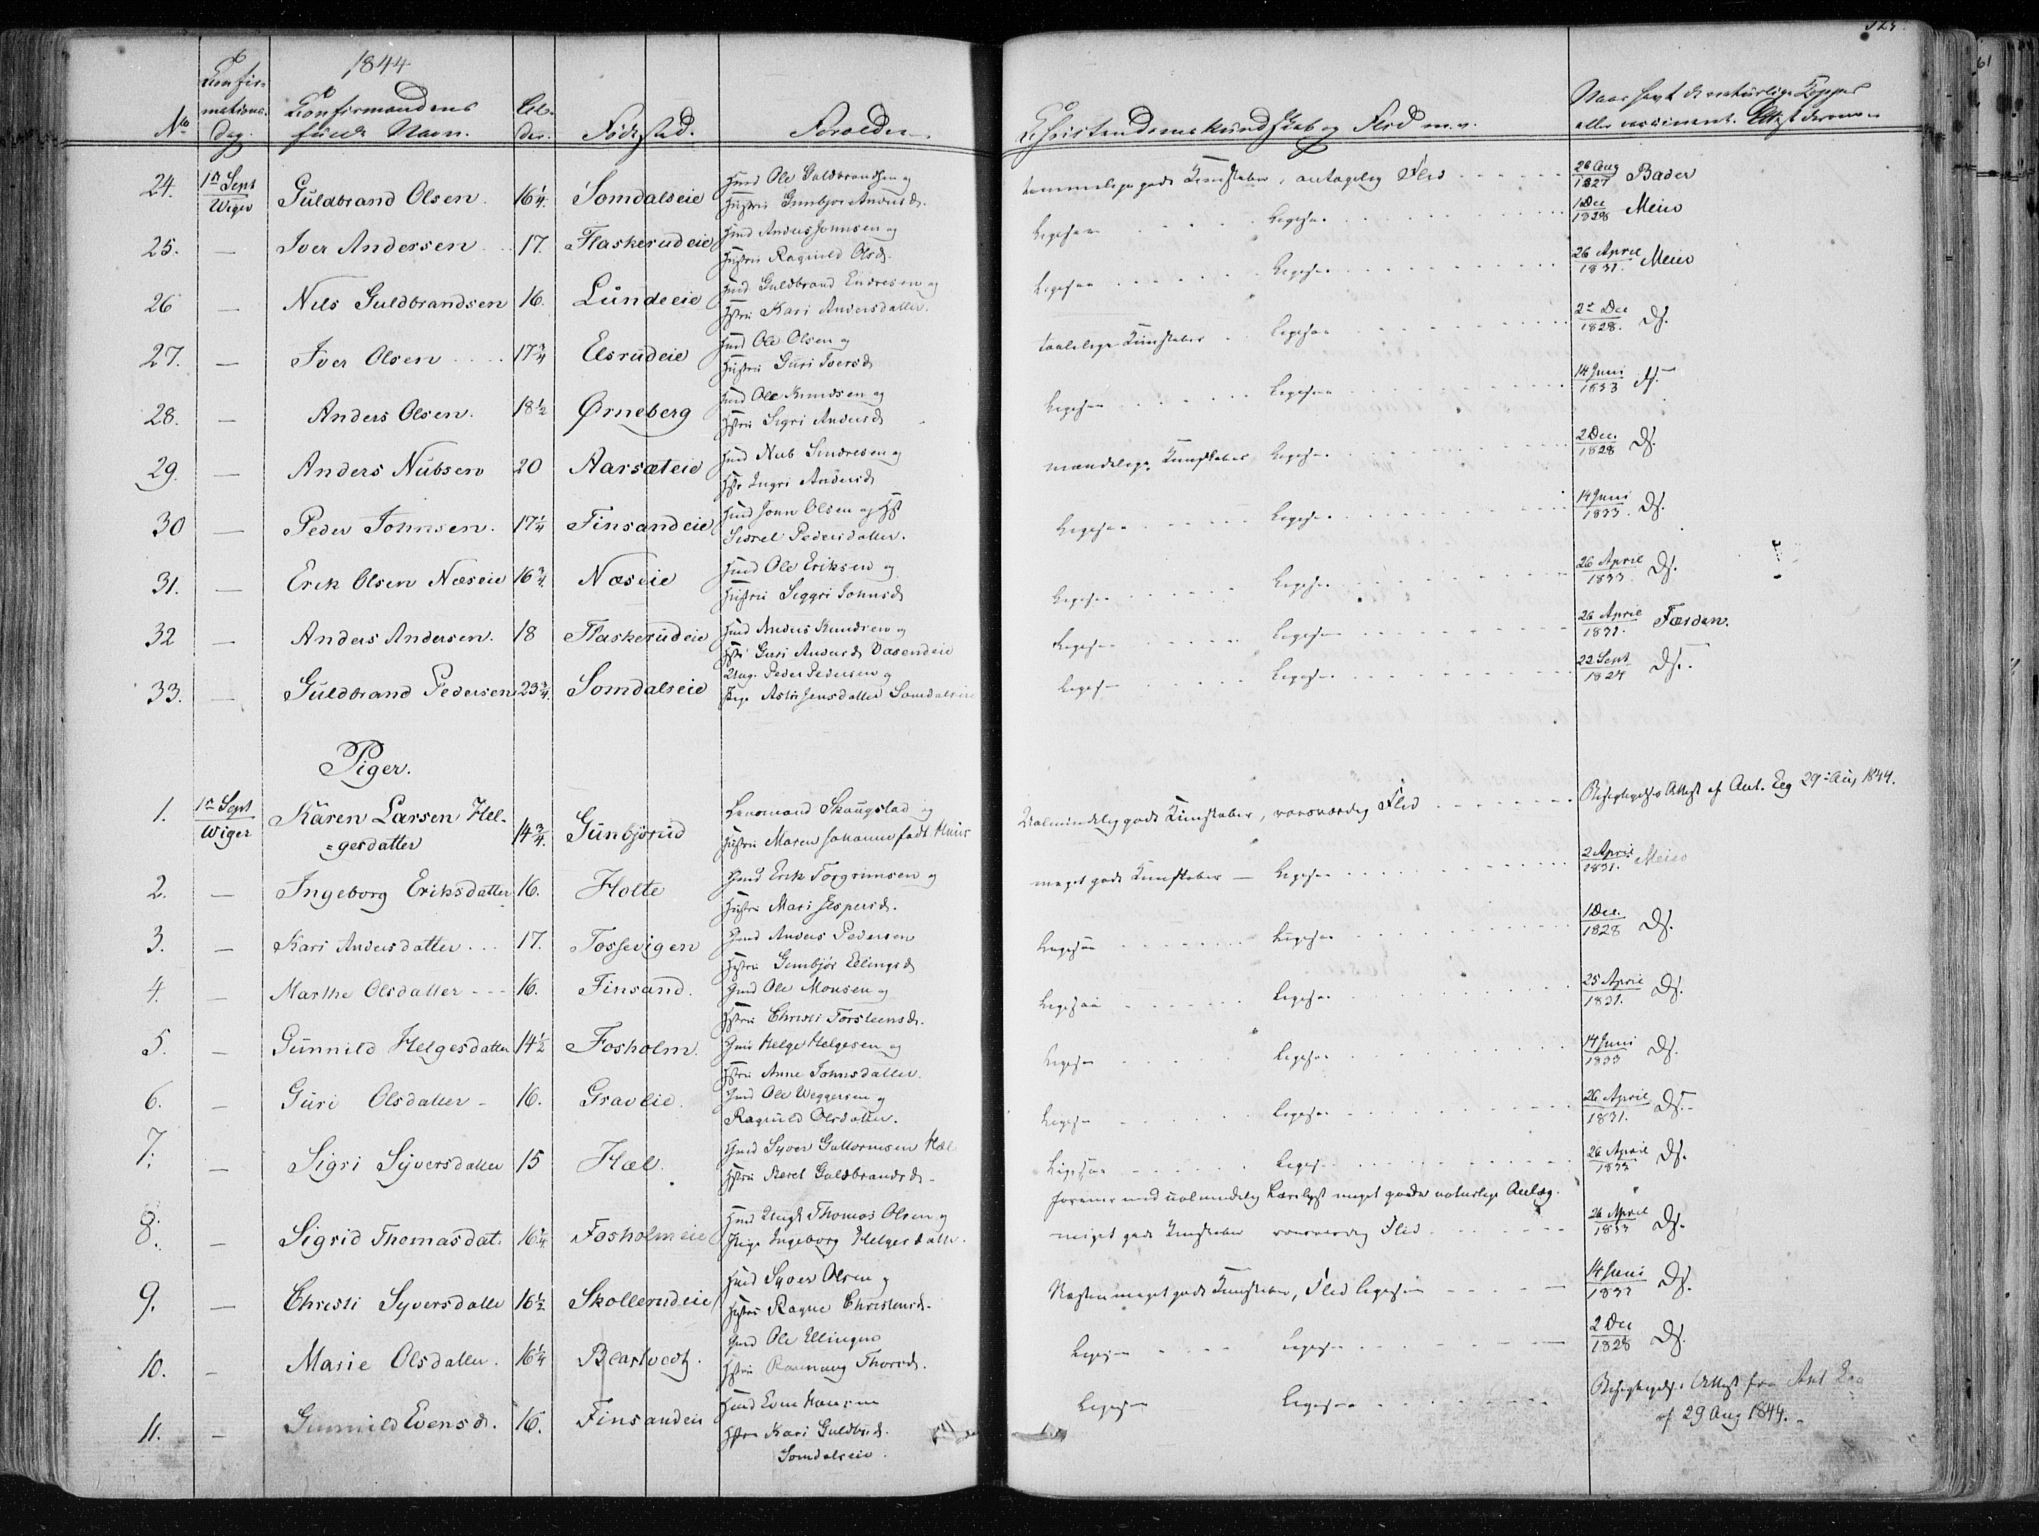 1844
No Confirmations Dag. Confirmandens fulde Navn. Alder. Fødested. Forældre. Christendomskundskab og Flid m.v. Naar havt de naturlige Kopper eller vaccineret. Attest derom
24. 1n Sept Wiger Guldbrand Olsen. 16 1/4. Somdalseie Hmd Ole Guldbrandsen og Hustru Gunbjør Andersd. temmelige gode Kundskaber, antagelig Flid 26 Aug 1827 Bader
25. — Iver Andersen 17. Flaskerudeie Hmd Anders Johnsen og Hustru Ragnild Olsd. Ligesaa Ligesaa 1 Dec 1828 Meier
26 — Nils Guldbrandsen 16. Lundeeie Hmd Guldbrand Endresen og Hstru Kari Andersdatter. Ligesaa Ligesaa 26 April 1831. Meier
27. — Iver Olsen 17 3/4 Elsrudeie Hmd Ole Olsen og Hustru Guri Iversd taalelige Kundskaber Ligesaa 2n Dec 1828. Ds.
28. — Anders Olsen. 18 1/2 Ørneberg Hmd Ole Knudsen og Hstru Sigri Andersd Ligesaa Ligesaa 14 Juni 1833 Ds.
29. — Anders Nubsen 20 Aarsæteie Hmd Nub Endresen og Hstr Ingri Andersd maadelige Kundskaber Ligesaa 2 Dec. 1828 Ds.
30 — Peder Johnsen. 17 1/4 Finsandeie Hmd John Olsen og Hst Sidsel Pedersdatter. Ligesaa Ligesaa 14 Juni 1833. Ds.
31. — Erik Olsen Næseie 16 3/4. Næseie Hmd Ole Eriksen og Hustru Siggri Johnsd Ligesaa Ligesaa 26 April 1833. Ds.
32 — Anders Andersen. 18 Flaskerudeie Hmd Anders Knudsen og Hstr Guri Andersd Vasendeie Ligesaa Ligesaa 26 April 1831. Færden.
33. — Guldbrand Pedersen 23 3/4. Somdalseie Ung. Peder Pedersen og Pige Astri Jensdatter Somdalseie Ligesaa Ligesaa 22 Sept 1827 Ds.
Piger.
1. 1n Sept Wiger Karen Larsen Helgesdatter 14 3/4. Gunbjørud Lensmand Skaugstad og Hustru Maren Johanne født Ualmindelig gode Kundskaber, roesværdig Flid Attest af Ant. Eeg 29n Aug 1844.
2. — Ingeborg Eriksdatter 16. Holte Hmd Erik Torgrimsen og Hustru Mari Jespersd. meget gode Kundskaber — Ligesaa 2 April 1831. Meier
3. — Kari Andersdatter 17. Fossevigen Hmd Anders Pedersen Hstru Gunbjør Ellingsd Ligesaa Ligesaa 1 Dec. 1828 Ds.
4. — Marthe Olsdatter 16. Finsand. Hmd Ole Monsen og Hstru Christi Torsteensd. Ligesaa Ligesaa 25 April 1831. Ds.
5. — Gunnild Helgesdatter 14 1/2 Fosholm. Hmd Helge Helgesen og Hstru Anne Johnsdatter. Ligesaa Ligesaa 14 Juni 1833 Ds.
6. — Guri Olsdatter 16. Gravlie. Hmd Ole Weggersen og Ragnild Olsdatter. Ligesaa Ligesaa 26 April 1831. Ds.
7. — Sigri Syversdatter 15 Hæl. Hmd Syver Guttormsen Hæl Hstru Beret Guldbrandsd. Ligesaa Ligesaa 26 April 1833 Ds.
forener med ualmindelig Lærelyst meget gode naturlige Anlæg.
8. — Sigrid Thomasdat. 16 1/4 Fosholmeie Hmd Ungk Thomas Olsen og Pige Ingeborg Helgesdatter. meget gode Kundskaber roesværdig Flid 26 April 1833 Ds.
9. — Christi Syversdatter 16 1/2 Skollerudeie Hmd Syver Olsen og Hustru Ragne Christensd. Næsten meget gode Kundskaber, Flid ligesaa 14 Juni 1833 Ds.
10. — Marie Olsdatter. 16 1/4 Hmd Ole Ellingsen Hstru Rannaug Thorsd. Ligesaa Ligesaa 2 Dec 1828 Ds.
11. — Gunnild Evensd. 16. Finsandeie Hmd Even Hansen Hstru Kari Guldbrd. Somdalseie. Ligesaa Ligesaa Attest fra Ant. Eeg af 29 Aug 1844.